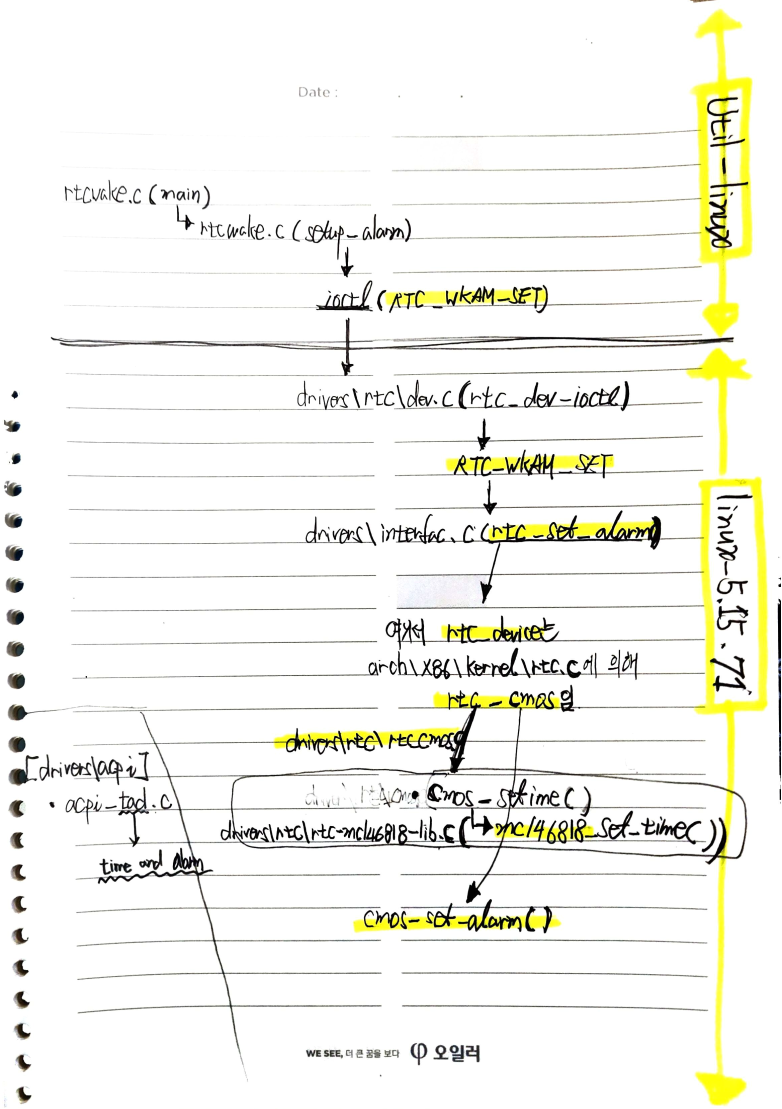 Date : . .
Util-linux
rtcwake.c (main)
rtcwake.c (setup_alarm)
ioctl (RTC_WKAM_SET)
drivers\rtc\dev.c (rtc_dev-ioctl)
RTC_WKAM_SET
drivers\interfac.c (rtc_set_alarm)
linux-5.15.71
여기서 rtc_device는
arch\x86\kernel\rtc.c에 의해
rtc_cmos임
drivers\rtc\rtc cmos
[drivers\acpi]
• acpi_tad.c
time and alarm
• cmos_setime()
drivers\rtc\rtc-mc146818-lib.c (mc146818_set_time())
cmos-set-alarm()
WE SEE, 더 큰 꿈을 보다 오일러